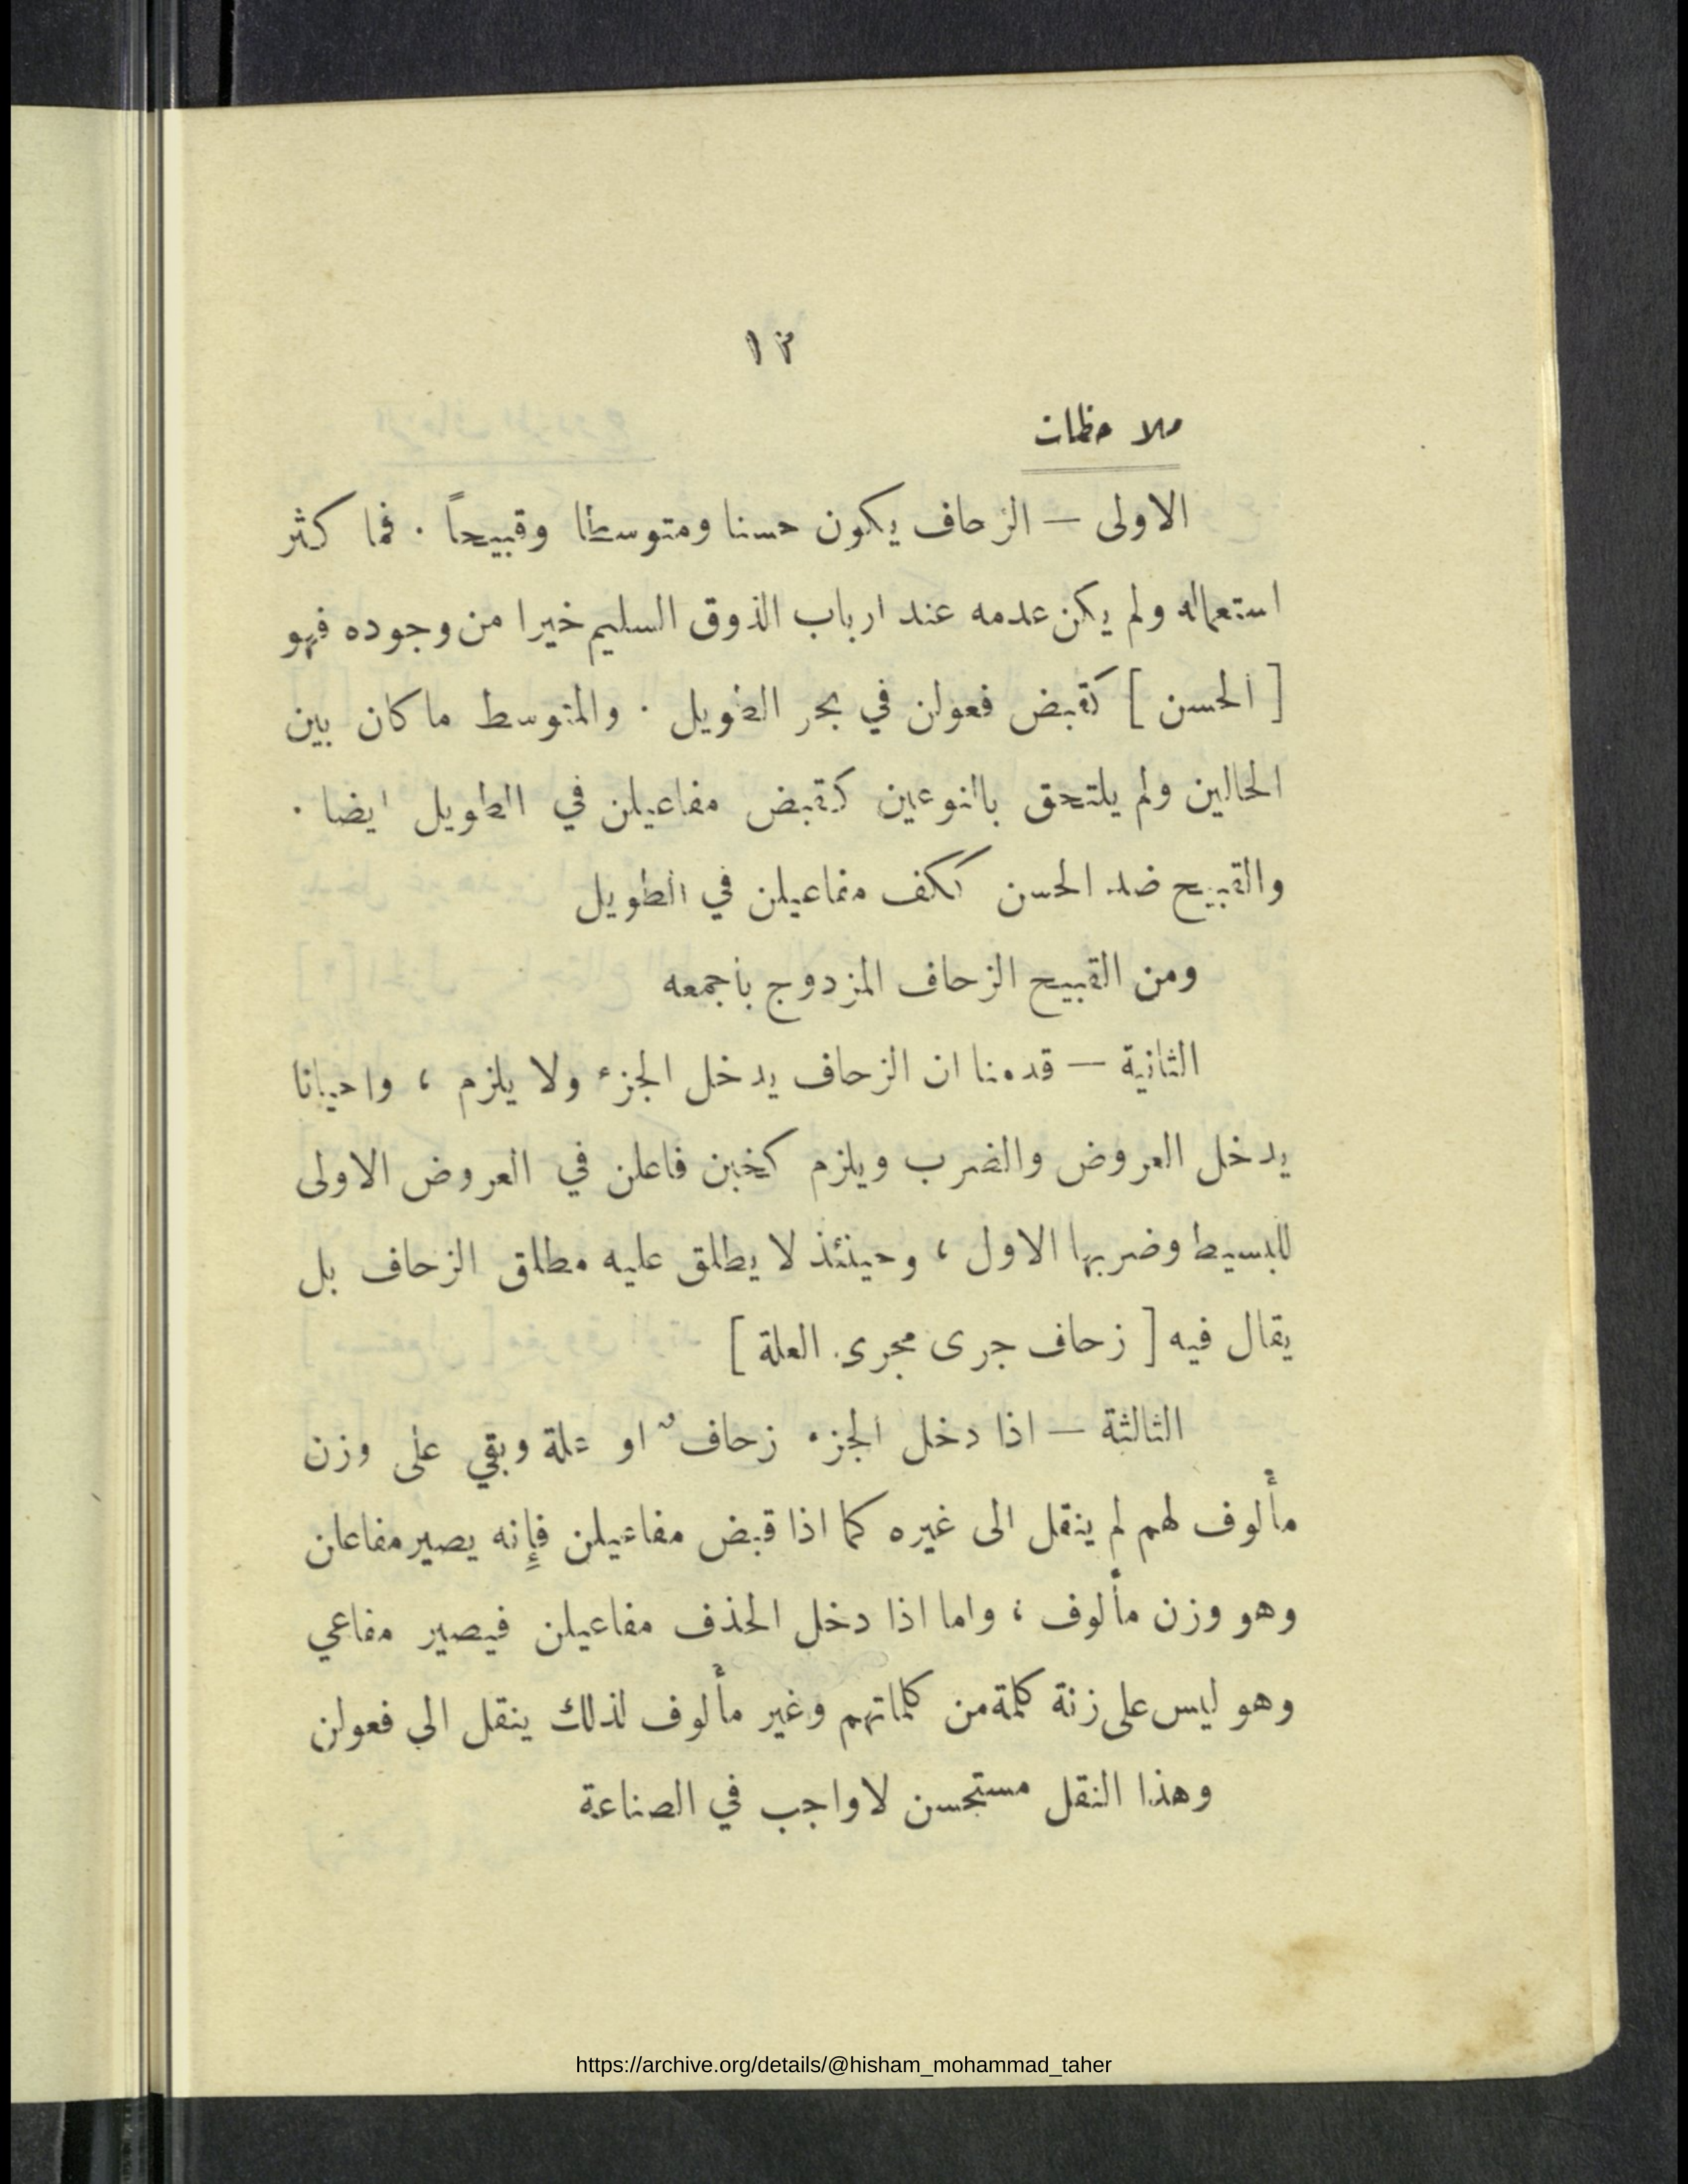 ١٢
ملاحظات
الاولى — الزحاف يكون حسنا ومتوسطا وقبيحاً . فما كثر
استعماله ولم يكن عدمه عند ارباب الذوق السليم خيرا من وجوده فهو
[ الحسن ] كقبض فعولن في بحر الطويل . والمتوسط ما كان بين
الحالين ولم يلتحق بالنوعين كقبض مفاعيلن في الطويل ايضا .
والقبيح ضد الحسن ككف مفاعيلن في الطويل
ومن القبيح الزحاف المزدوج بأجمعه
الثانية — قدمنا ان الزحاف يدخل الجزء ولا يلزم ، واحيانا
يدخل العروض والضرب ويلزم كخبن فاعلن في العروض الاولى
للبسيط وضربها الاول ، وحينئذ لا يطلق عليه مطلق الزحاف بل
يقال فيه [ زحاف جرى مجرى العلة ]
الثالثة — اذا دخل الجزء زحافٌ او علة وبقي على وزن
مألوف لهم لم ينقل الى غيره كما اذا قبض مفاعيلن فإنه يصير مفاعلن
وهو وزن مألوف ، واما اذا دخل الحذف مفاعيلن فيصير مفاعي
وهو ليس على زنة كلمة من كلماتهم وغير مألوف لذلك ينقل الى فعولن
وهذا النقل مستحسن لا واجب في الصناعة
https://archive.org/details/@hisham_mohammad_taher